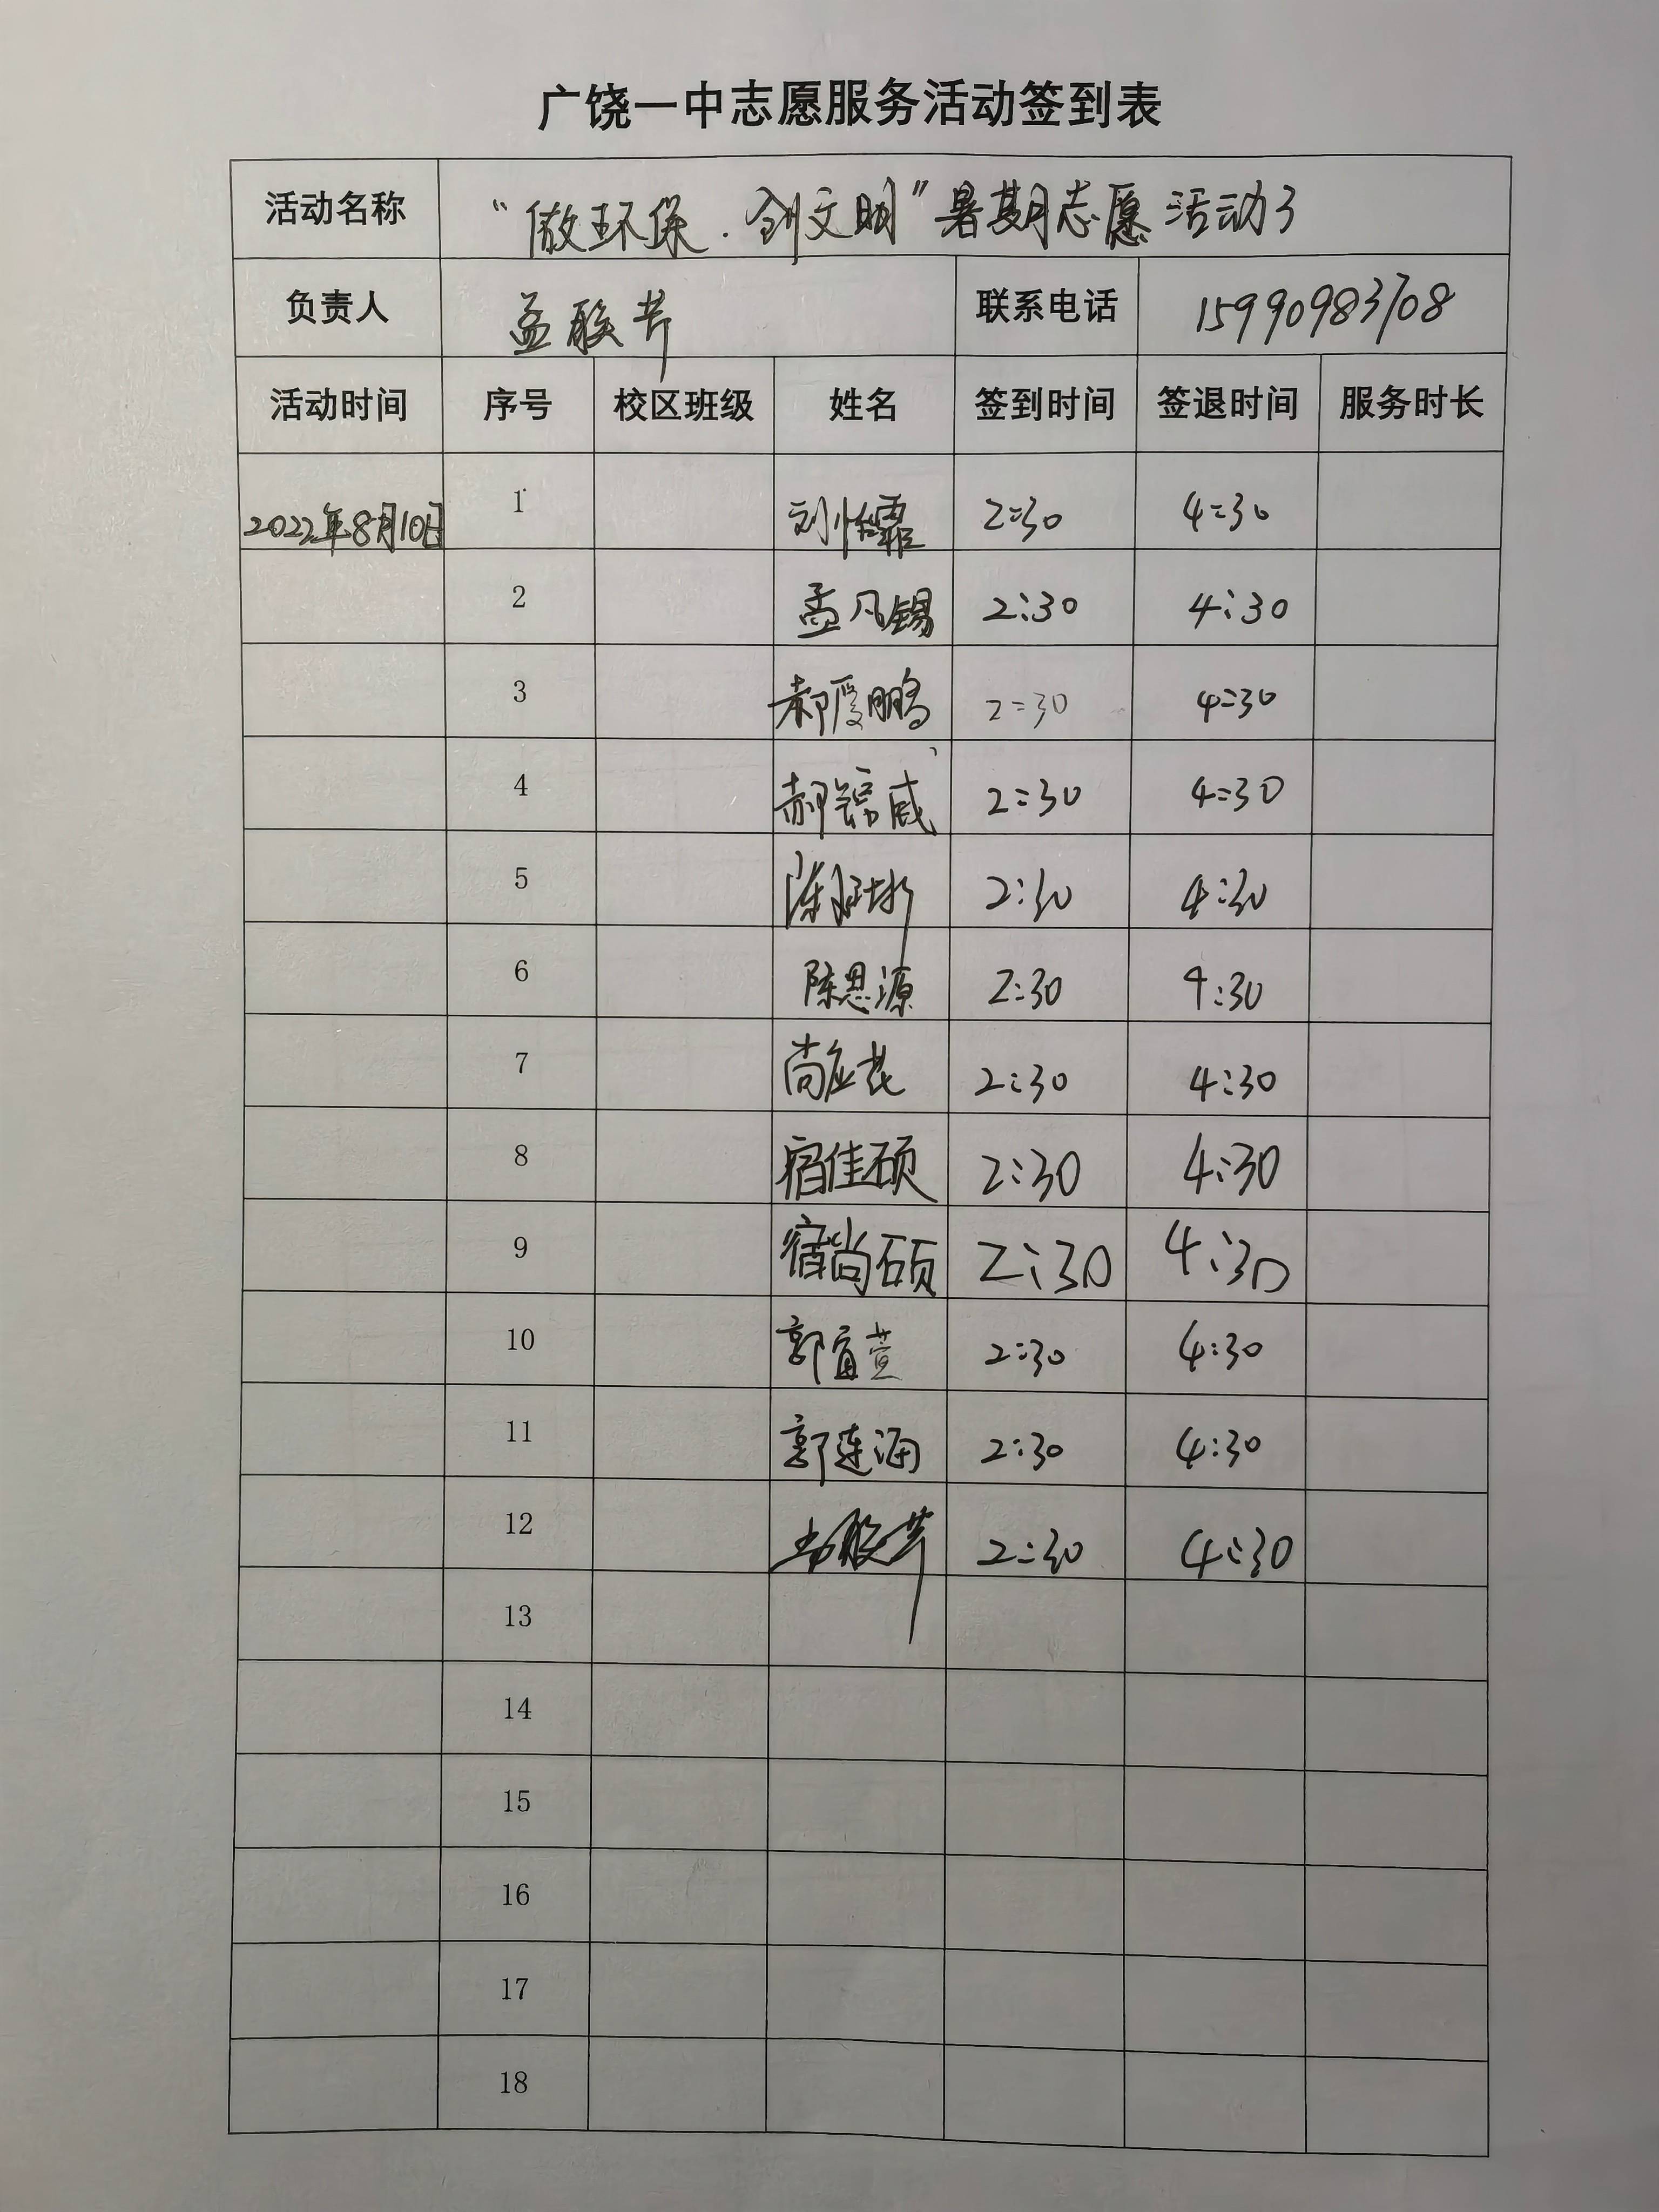 广饶一中志愿服务活动签到表
活动名称 “做环保.创文明”暑期志愿活动3
负责人 孟 联系电话 15990983708
活动时间 序号 校区班级 姓名 签到时间 签退时间 服务时长
2022年8月10日 1 刘怡霏 2:30 4:30
2 孟凡锡 2:30 4:30
3 郝厦鹏 2:30 4:30
4 郝锦威 2:30 4:30
5 陈 2:30 4:30
6 陈思源 2:30 4:30
7 尚应 2:30 4:30
8 宿佳硕 2:30 4:30
9 宿尚硕 2:30 4:30
10 郭宣萱 2:30 4:30
11 郭连海 2:30 4:30
12 2:30 4:30
13
14
15
16
17
18